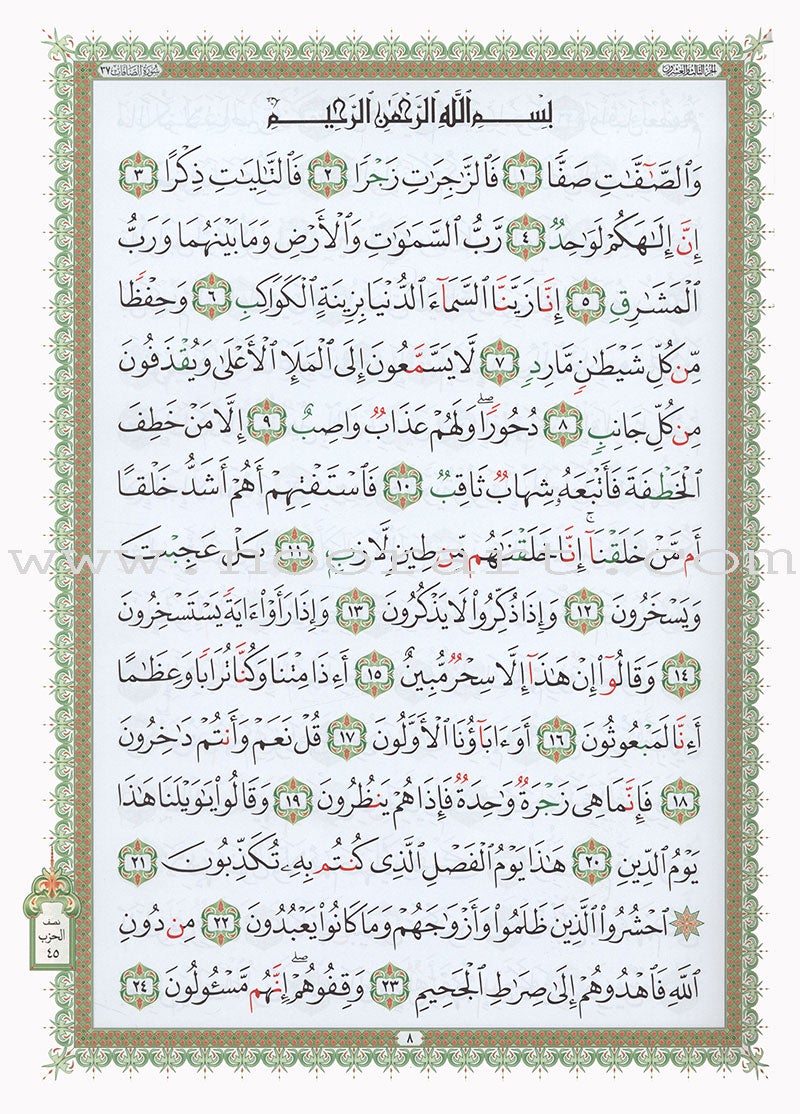 سورة الصافات ٣٧
الجزء الثالث والعشرون
بِسْمِ اللَّهِ الرَّحْمَٰنِ الرَّحِيمِ
وَالصَّٰٓفَّٰتِ صَفًّا ١ فَالزَّٰجِرَٰتِ زَجْرًا ٢ فَالتَّٰلِيَٰتِ ذِكْرًا ٣
إِنَّ إِلَٰهَكُمْ لَوَٰحِدٌ ٤ رَّبُّ السَّمَٰوَٰتِ وَالْأَرْضِ وَمَا بَيْنَهُمَا وَرَبُّ
الْمَشَٰرِقِ ٥ إِنَّا زَيَّنَّا السَّمَآءَ الدُّنْيَا بِزِينَةٍ الْكَوَاكِبِ ٦ وَحِفْظًا
مِّن كُلِّ شَيْطَٰنٍ مَّارِدٍ ٧ لَّا يَسَّمَّعُونَ إِلَى الْمَلَإِ الْأَعْلَىٰ وَيُقْذَفُونَ
مِن كُلِّ جَانِبٍ ٨ دُحُورًا ۖ وَلَهُمْ عَذَابٌ وَاصِبٌ ٩ إِلَّا مَنْ خَطِفَ
الْخَطْفَةَ فَأَتْبَعَهُۥ شِهَابٌ ثَاقِبٌ ١٠ فَاسْتَفْتِهِمْ أَهُمْ أَشَدُّ خَلْقًا
أَم مَّنْ خَلَقْنَآ ۚ إِنَّا خَلَقْنَٰهُم مِّن طِينٍ لَّازِبٍ ١١ بَلْ عَجِبْتَ
وَيَسْخَرُونَ ١٢ وَإِذَا ذُكِّرُوا لَا يَذْكُرُونَ ١٣ وَإِذَا رَأَوْا ءَايَةً يَسْتَسْخِرُونَ
١٤ وَقَالُوٓا إِنْ هَٰذَآ إِلَّا سِحْرٌ مُّبِينٌ ١٥ أَءِذَا مِتْنَا وَكُنَّا تُرَابًا وَعِظَٰمًا
أَءِنَّا لَمَبْعُوثُونَ ١٦ أَوَءَابَآؤُنَا الْأَوَّلُونَ ١٧ قُلْ نَعَمْ وَأَنتُمْ دَٰخِرُونَ
١٨ فَإِنَّمَا هِيَ زَجْرَةٌ وَٰحِدَةٌ فَإِذَا هُمْ يَنظُرُونَ ١٩ وَقَالُوا يَٰوَيْلَنَا هَٰذَا
يَوْمُ الدِّينِ ٢٠ هَٰذَا يَوْمُ الْفَصْلِ الَّذِي كُنتُم بِهِۦ تُكَذِّبُونَ ٢١
۞ احْشُرُوا الَّذِينَ ظَلَمُوا وَأَزْوَٰجَهُمْ وَمَا كَانُوا يَعْبُدُونَ ٢٢ مِن دُونِ
اللَّهِ فَاهْدُوهُمْ إِلَىٰ صِرَٰطِ الْجَحِيمِ ٢٣ وَقِفُوهُمْ ۖ إِنَّهُم مَّسْـُٔولُونَ ٢٤
نصف
الحزب
٤٥
٨
www.noorart.com